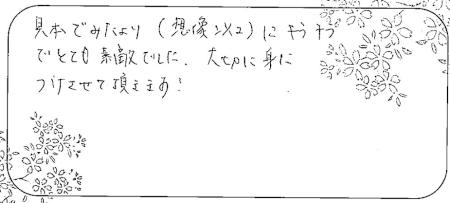 見本でみたより(想像以上)にキラキラ
でとても素敵でした。大切に身に
つけさせて頂きます!